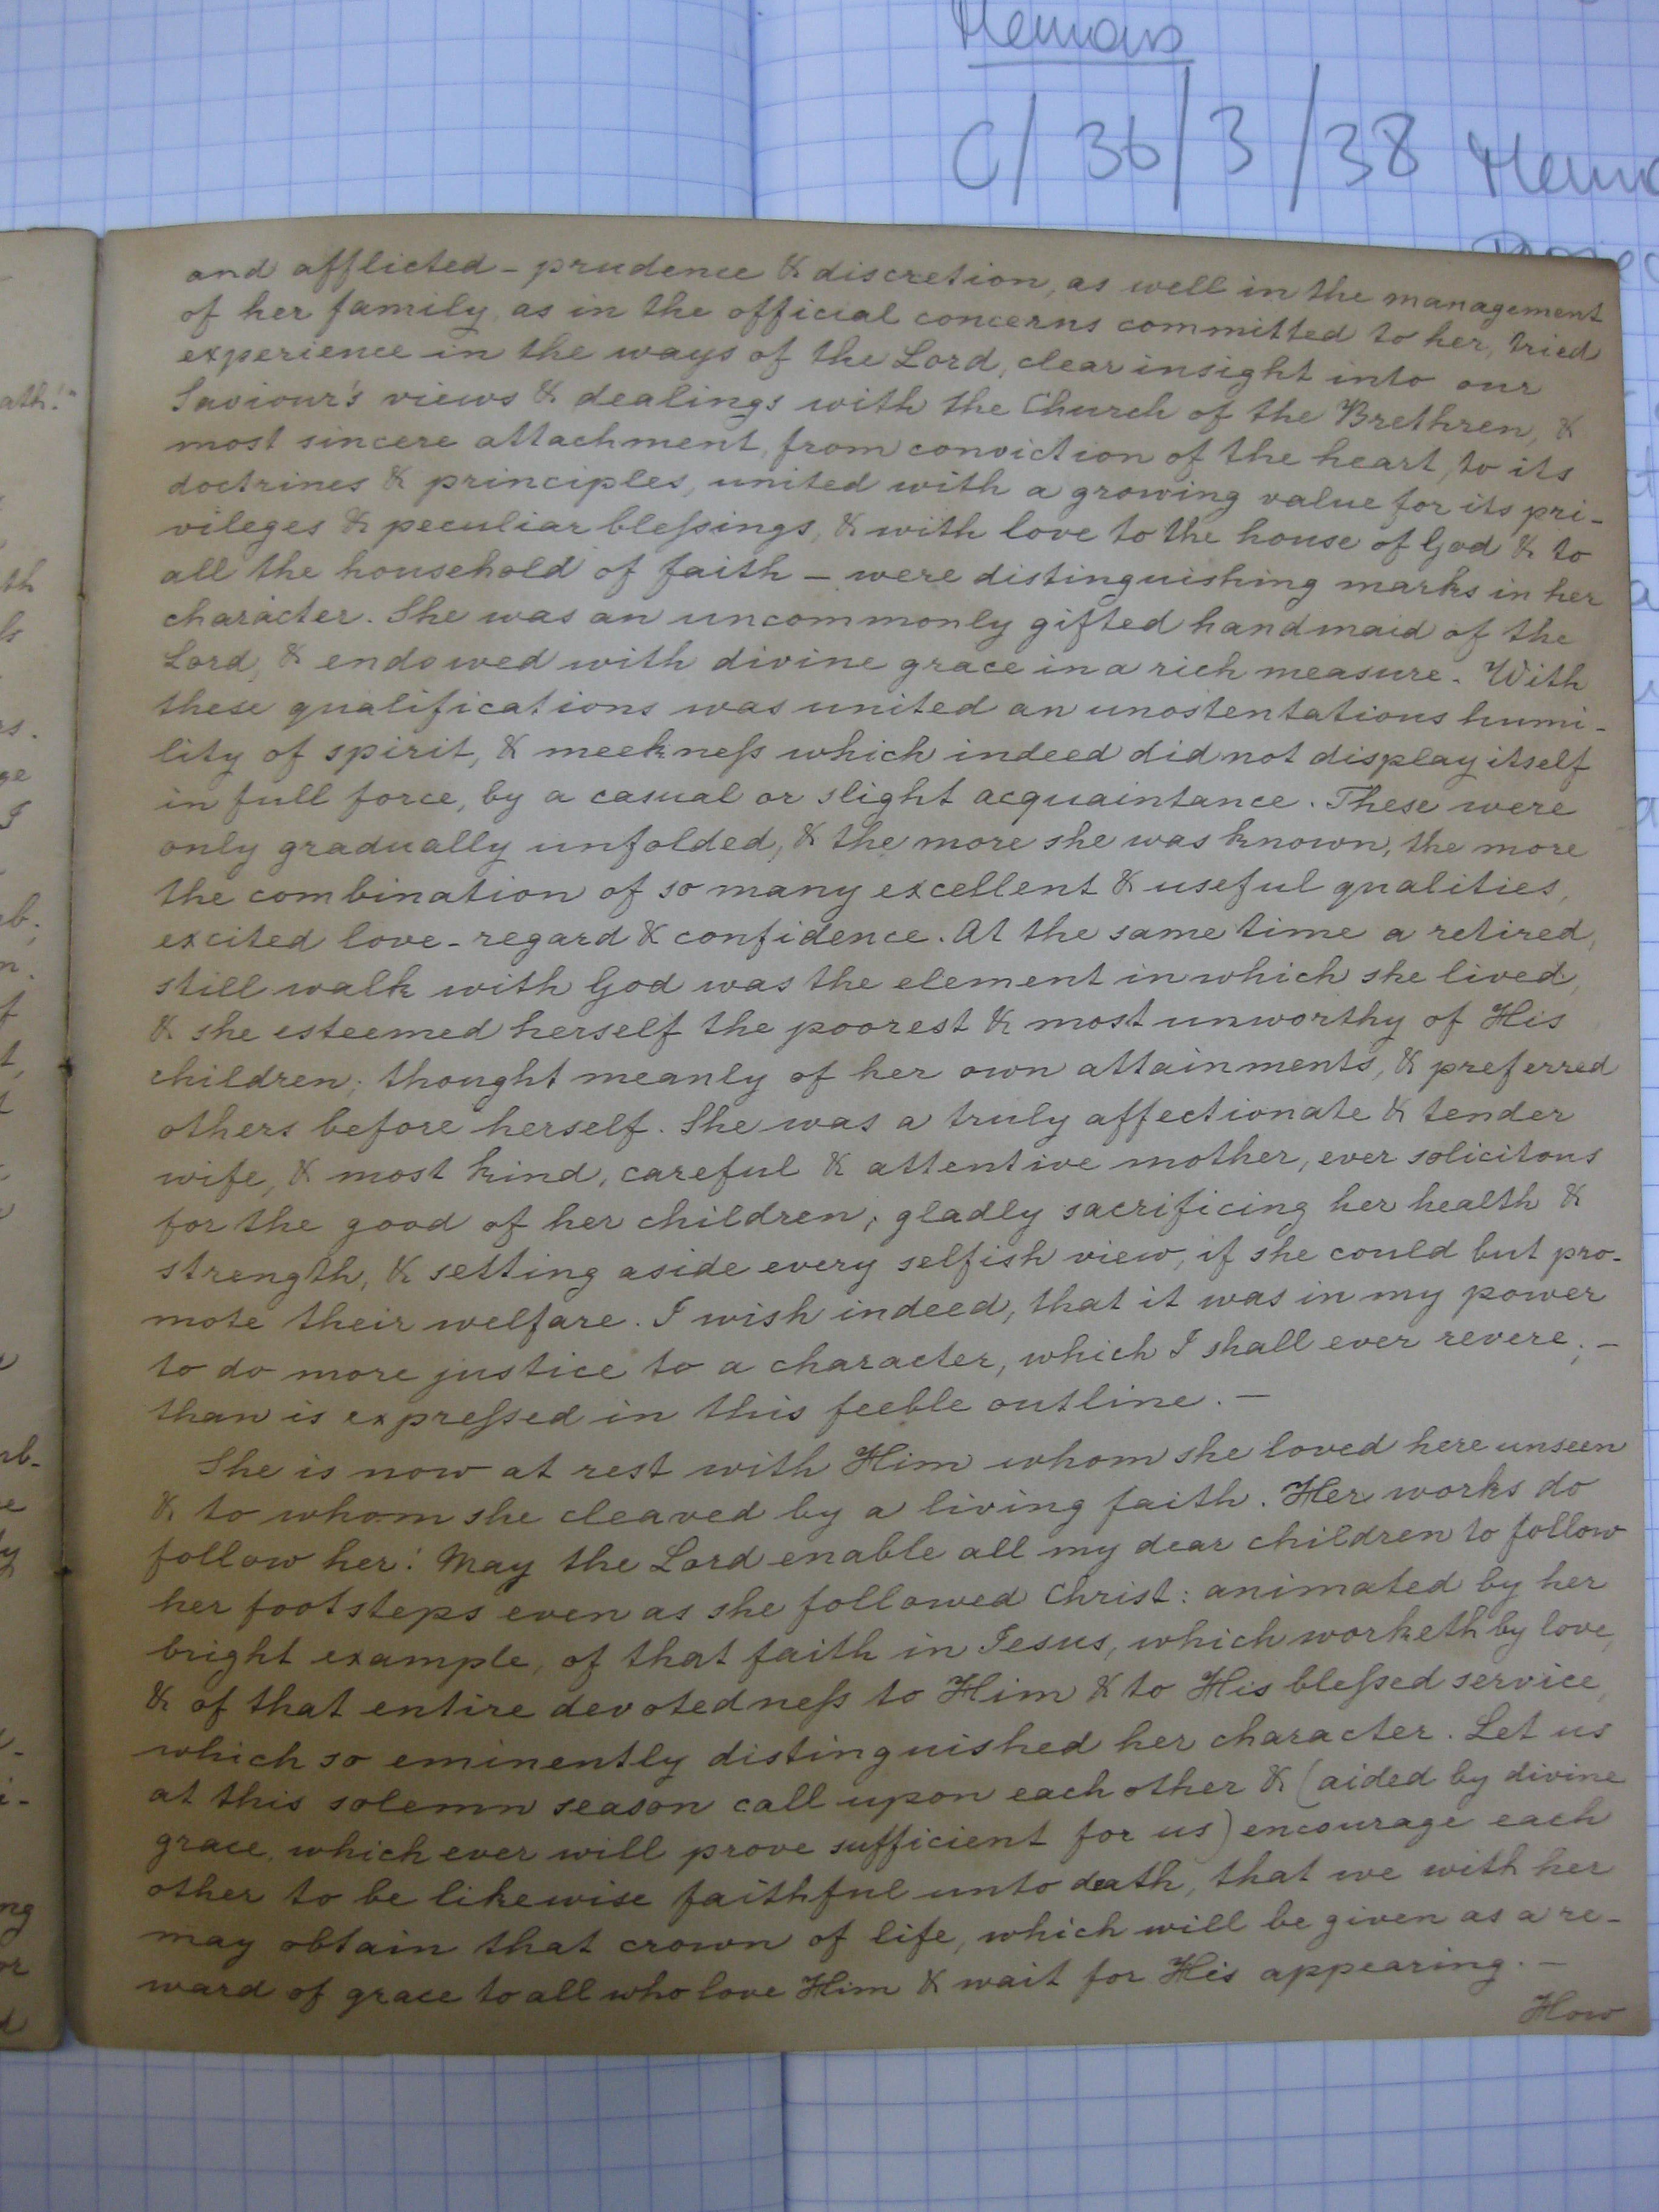 Memoirs
C/36/3/38 Memo
and afflicted - prudence & discretion, as well in the management
of her family, as in the official concerns committed to her, tried
experience in the ways of the Lord, clear insight into our
Saviour's views & dealings with the Church of the Brethren, &
most sincere attachment, from conviction of the heart, to its
doctrines & principles, united with a growing value for its pri-
vileges & peculiar bleſsings, & with love to the house of God & to
all the household of faith - were distinguishing marks in her
character. She was an uncommonly gifted handmaid of the
Lord, & endowed with divine grace in a rich measure. With
these qualifications was united an unostentatious humi-
lity of spirit, & meekneſs which indeed did not display itself
in full force, by a casual or slight acquaintance. These were
only gradually unfolded, & the more she was known, the more
the combination of so many excellent & useful qualities,
excited love - regard & confidence. At the same time a retired,
still walk with God was the element in which she lived,
& she esteemed herself the poorest & most unworthy of His
children; thought meanly of her own attainments, & preferred
others before herself. She was a truly affectionate & tender
wife, & most kind, careful & attentive mother, ever solicitous
for the good of her children; gladly sacrificing her health &
strength, & setting aside every selfish view, if she could but pro-
mote their welfare. I wish indeed, that it was in my power
to do more justice to a character, which I shall ever revere; -
than is expreſsed in this feeble outline. -
She is now at rest with Him whom she loved here unseen
& to whom she cleaved by a living faith. Her works do
follow her! May the Lord enable all my dear children to follow
her footsteps even as she followed Christ: animated by her
bright example, of that faith in Jesus, which worketh by love,
& of that entire devotedneſs to Him & to His bleſsed service,
which so eminently distinguished her character. Let us
at this solemn season call upon each other & (aided by divine
grace, which ever will prove sufficient for us) encourage each
other to be likewise faithful unto death, that we with her
may obtain that crown of life, which will be given as a re-
ward of grace to all who love Him & wait for His appearing. -
How